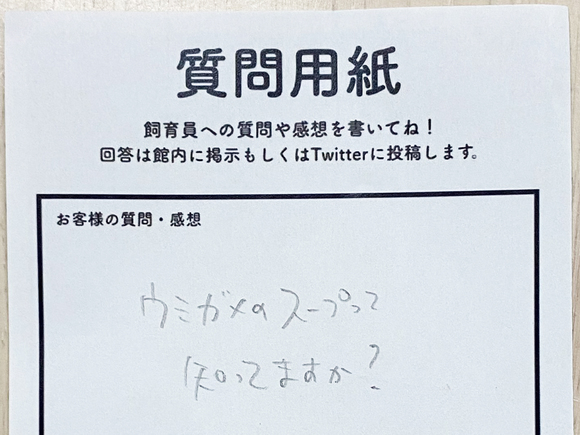 質問用紙
飼育員への質問や感想を書いてね！
回答は館内に掲示もしくはTwitterに投稿します。
お客様の質問・感想
ウミガメのスープって
知ってますか？